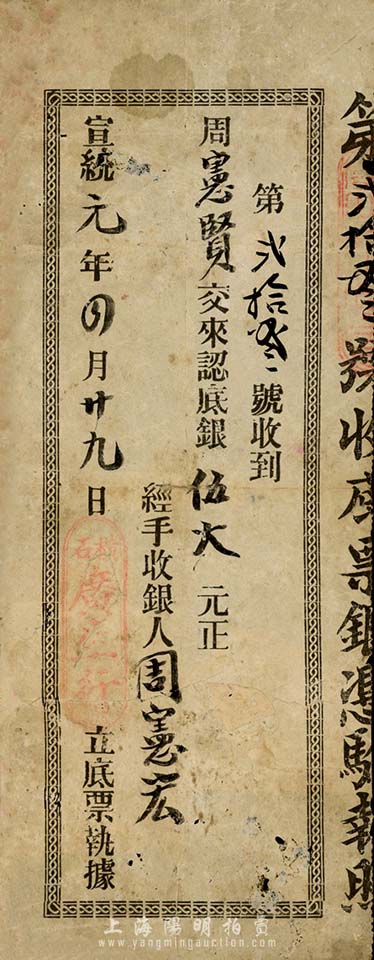 第弍拾弍號收底票銀憑騐執照
第弍拾弍號收到
周憲賢交來認底銀伍大元正
經手收銀人周憲宏
宣統元年四月廿九日
立底票執據
上海陽明拍賣
www.yangmingauction.com